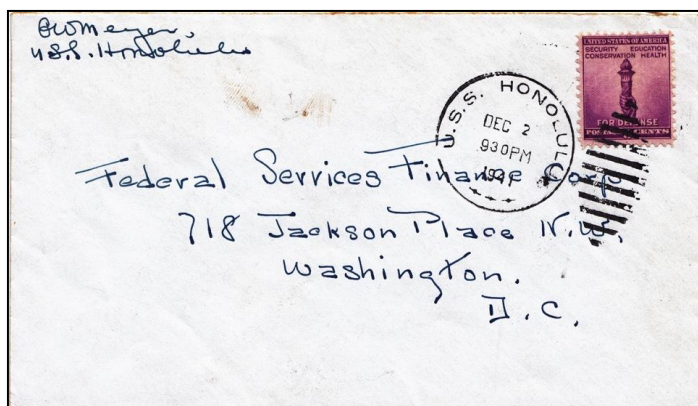 GWMeyer,
U.S.S. Honolulu
UNITED STATES OF AMERICA
SECURITY EDUCATION
CONSERVATION HEALTH
FOR DEFENSE
CENTS
U.S.S. HONOLULU
DEC 2
930PM
1941
Federal Services Finance Corp
718 Jackson Place N.W.,
Washington.
D.C.